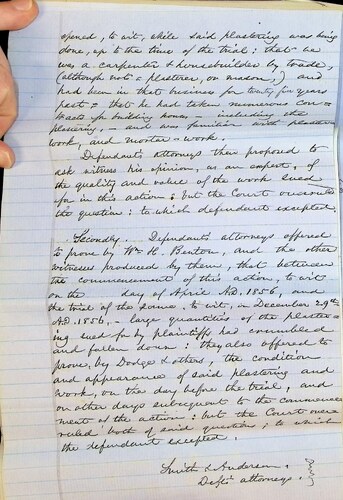 opened, to wit, while said plastering was being
done, up to the time of the trial: that he
was a carpenter & housebuilder by trade,
(although not a plasterer, or mason,) and
had been in that business for twenty five years
past = that he had taken numerous con=
tracts for building houses - including the
plastering, - and was familiar with plaster
work, and mortar-work.
Defendant's attorneys then proposed to
ask witness his opinion, as an expert, of
the quality and value of the work sued
for in this action; but the Court overruled
the question; to which defendant excepted.
Secondly. Defendant's attorneys offered
to prove by Wm H. Benton, and the other
witnesses produced by them, that between
the commencement of this action, to wit
on the day of April A.D. 1856, and
the trial of the same to wit, on December 29th
A.D. 1856, large quantities of the plaster=
ing sued for by plaintiff had crumbled
and fallen down: they also offered to
prove, by Dodge & others, the condition
and appearance of said plastering and
work, on the day before the trial, and
on other days subsequent to the commence
ment of the action: but the Court over
ruled both of said questions; to which
the defendant excepted.
Smith & Anderson,
Defts attorneys.